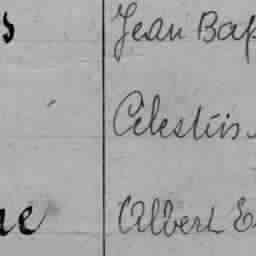 s Jean Bap
Célestin
ne Albert E